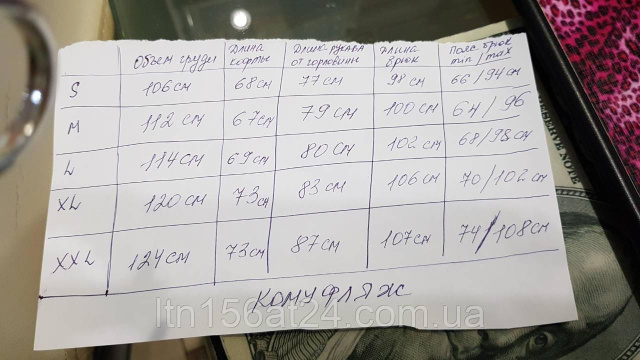 Объем груди Длина кофты Длина рукава от горловины Длина брюк Пояс брюк min / max
S 106 см 68 см 77 см 98 см 66 / 94 см
M 112 см 67 см 79 см 100 см 64 / 96
L 114 см 69 см 80 см 102 см 68 / 98 см
XL 120 см 73 см 83 см 106 см 70 / 102 см
XXL 124 см 73 см 87 см 107 см 74 / 108 см
КОМУФЛЯЖ
ltn156at24.com.ua